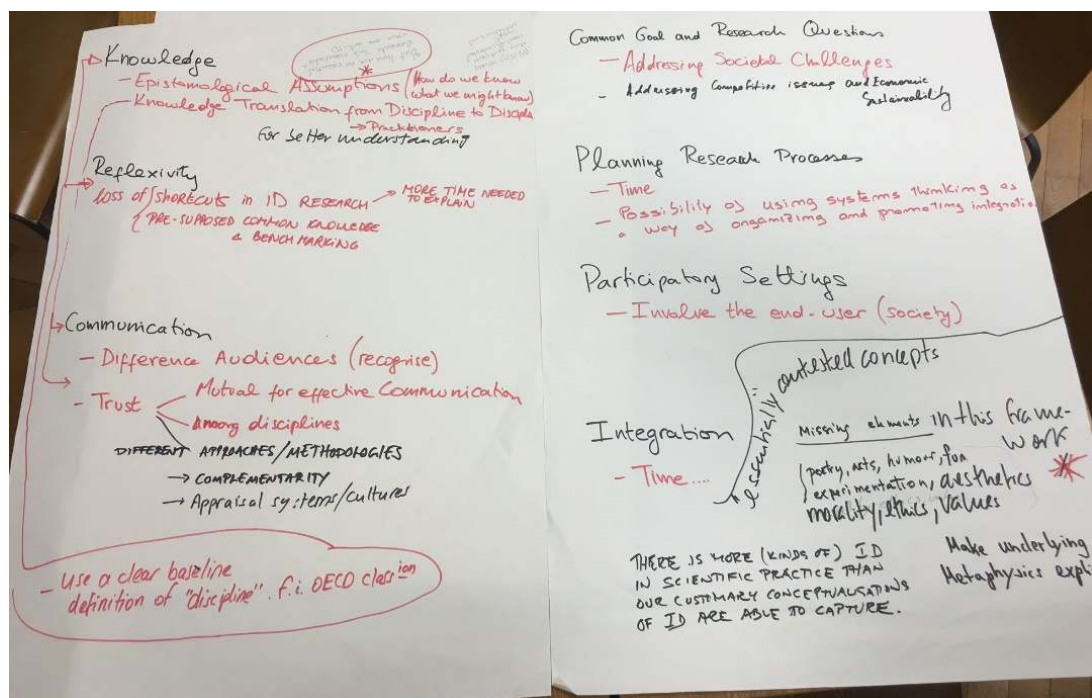 Knowledge
- Epistomological Assumptions (How do we know
what we might know)
- Knowledge Translation from Discipline to Discipli
→ Practitioners
For better understanding
Reflexivity
loss of / SHORTCUTS in ID RESEARCH → MORE TIME NEEDED
TO EXPLAIN
PRE-SUPPOSED COMMON KNOWLEDGE
& BENCHMARKING
Communication
- Difference Audiences (recognise)
- Trust
Mutual for effective Communication
Among disciplines
DIFFERENT APPROACHES/METHODOLOGIES
→ COMPLEMENTARITY
→ Appraisal systems/cultures
- use a clear baseline
definition of "discipline". f.i. OECD classion
Common Goal and Research Questions
- Addressing Societal Challenges
- Addressing Competitive issues and Economic
Sustainability
Planning Research Processes
- Time
- Possibility of using systems thinking as
a way of organizing and promoting integratio
Participatory Settings
- Involve the end-user (society)
"essentially contested concepts
Integration
- Time....
Missing elments in this frame-
work
(poetry, arts, humor, fun
experimentation, aesthetics
morality, ethics, values
THERE IS MORE (KINDS OF) ID
IN SCIENTIFIC PRACTICE THAN
OUR CUSTOMARY CONCEPTUALISATIONS
OF ID ARE ABLE TO CAPTURE.
Make underlying
Metaphysics expli